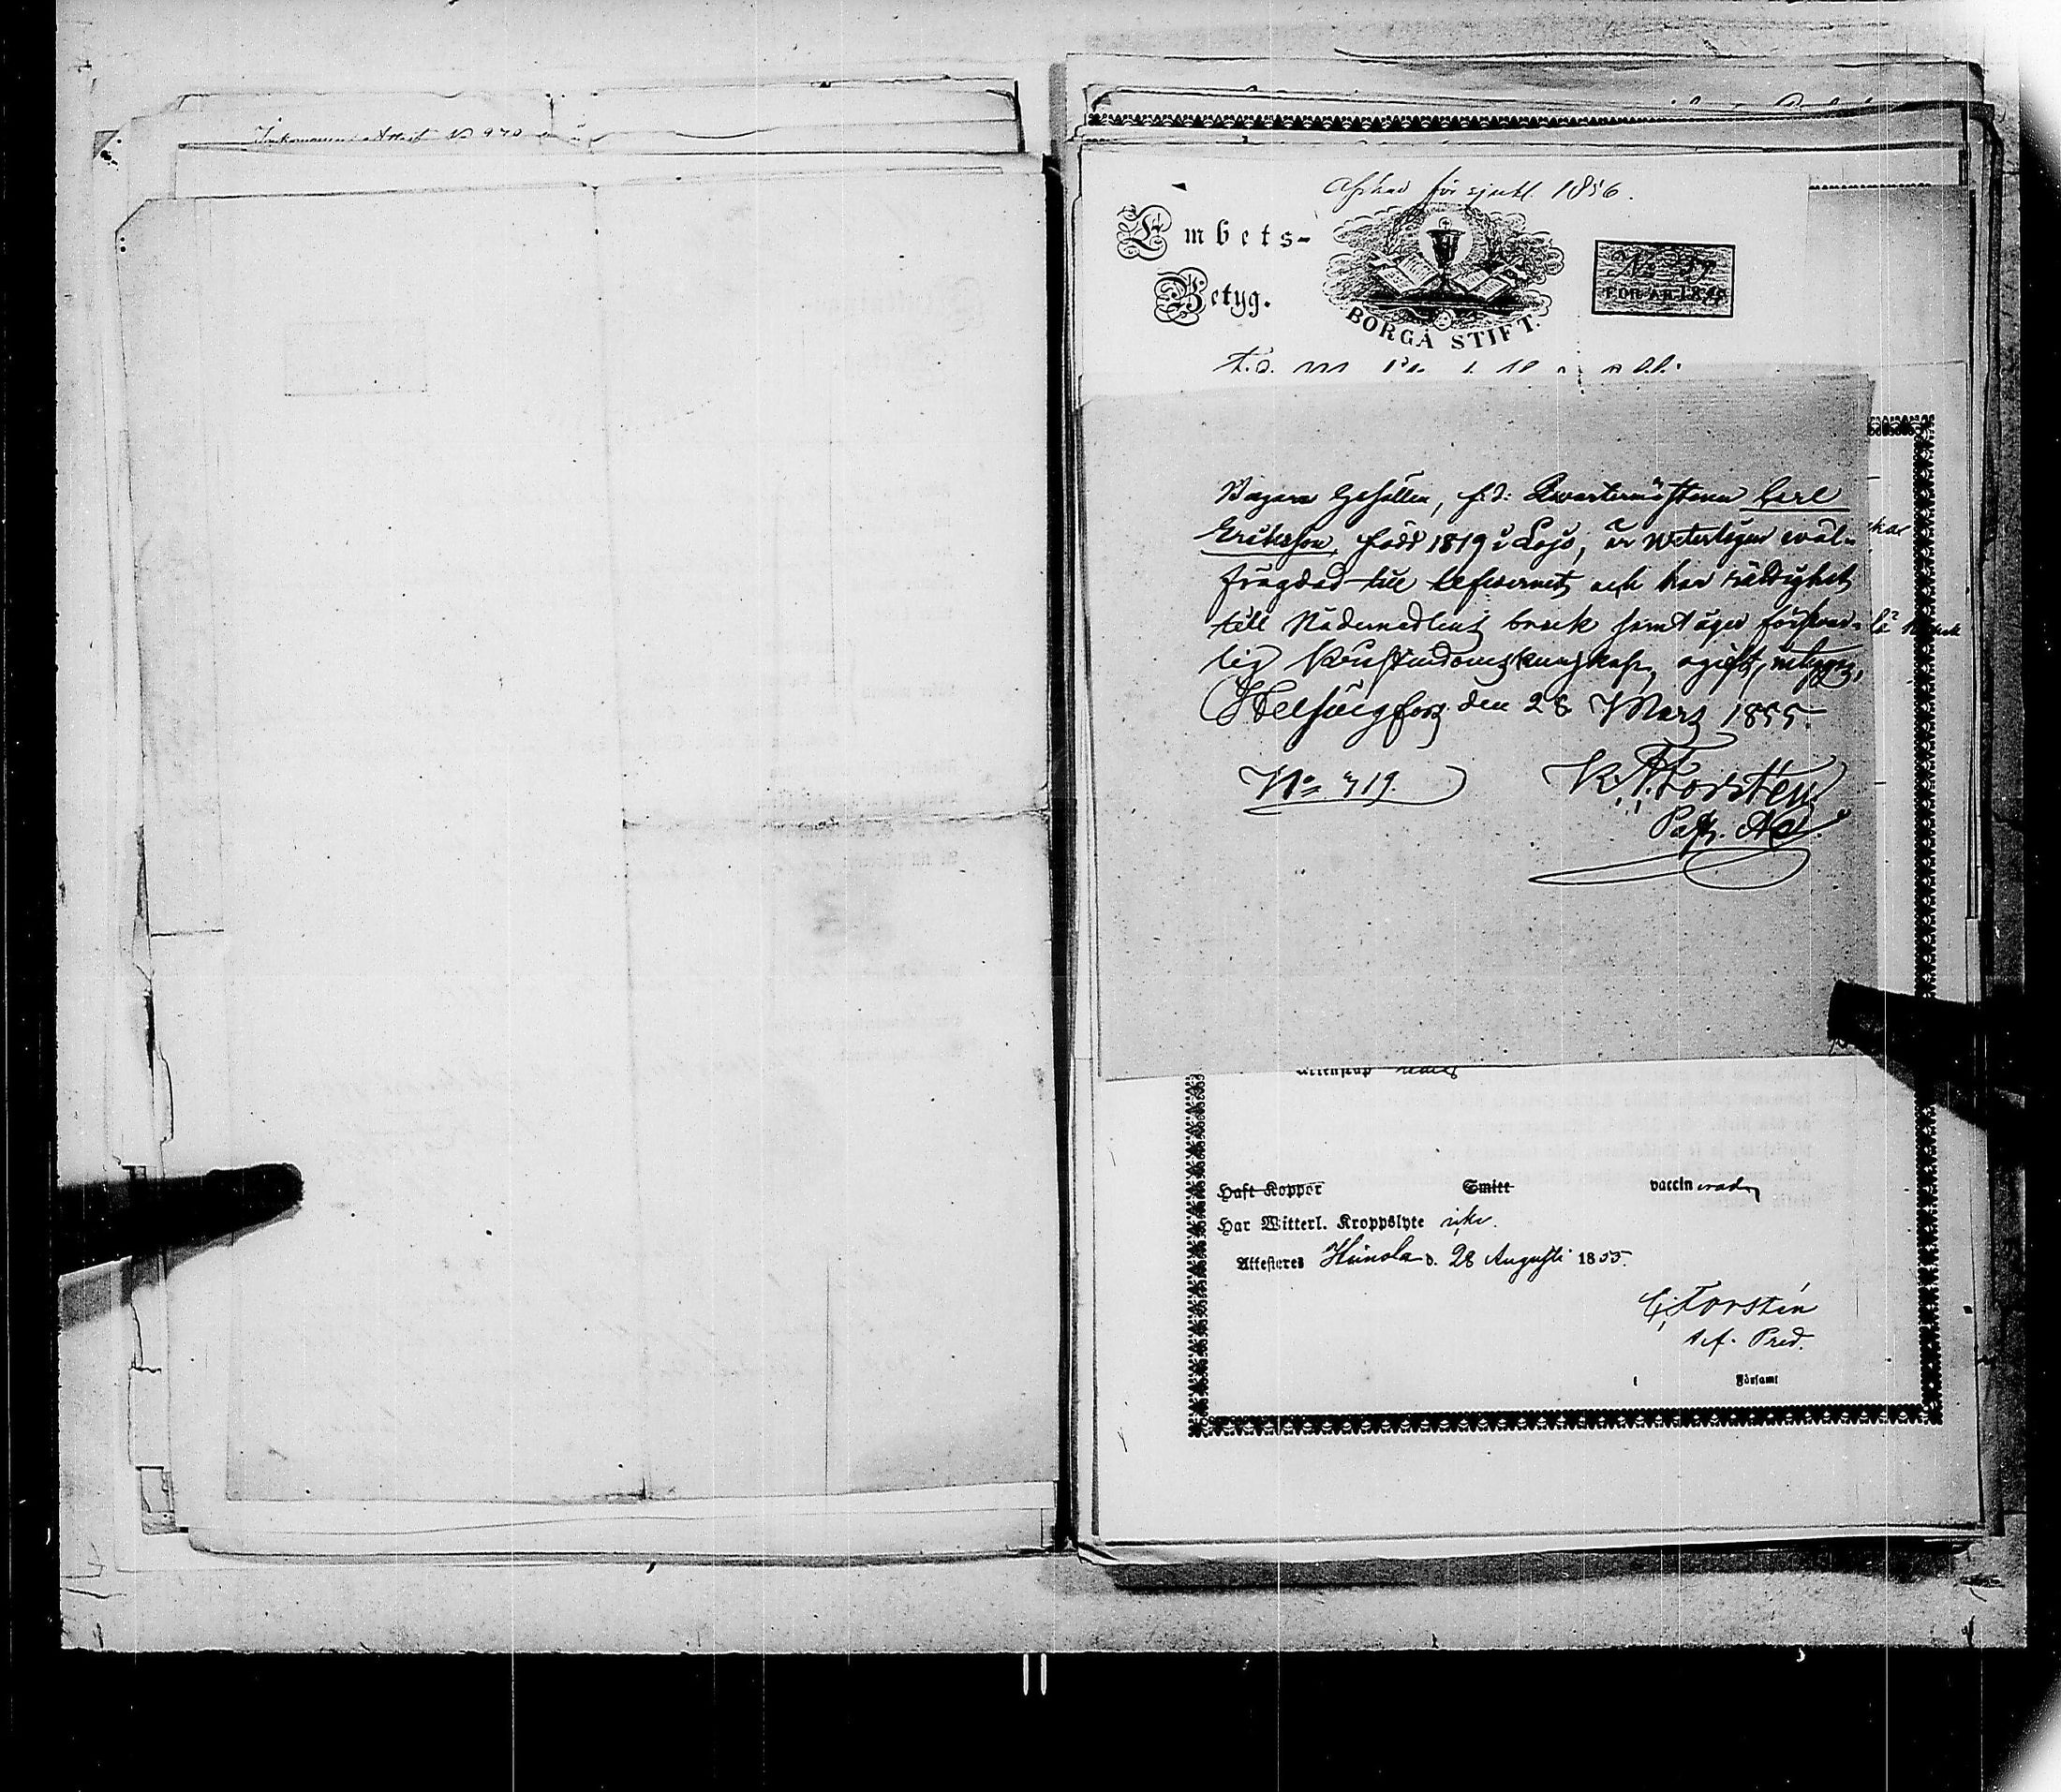 Inkomman Attest No 970
Afskad för sjutl. 1856.
Embets-
Betyg.
BORGÅ STIFT.
No 57
FÖR ÅR 18
Bagare Gesällen, f.d. Qvartermästaren Carl
Eriksson, född 1819 i Lojo, är veterligen wäl-
frägdad till lefvernet och har rättighet
till Nådemedlens bruk samt äger försvar-
lig Kristendomskunskap, ogift, intygar,
Helsingfors den 28 Mars 1855.
No 719.
K. A. Forstén
Past. Adj.
Haft Koppor Smitt vaccinerad
Har Witterl. Kroppslyte icke.
Attesteres Heinola d. 28 Augusti 1855.
C. Forstén
Pred.
i Församl